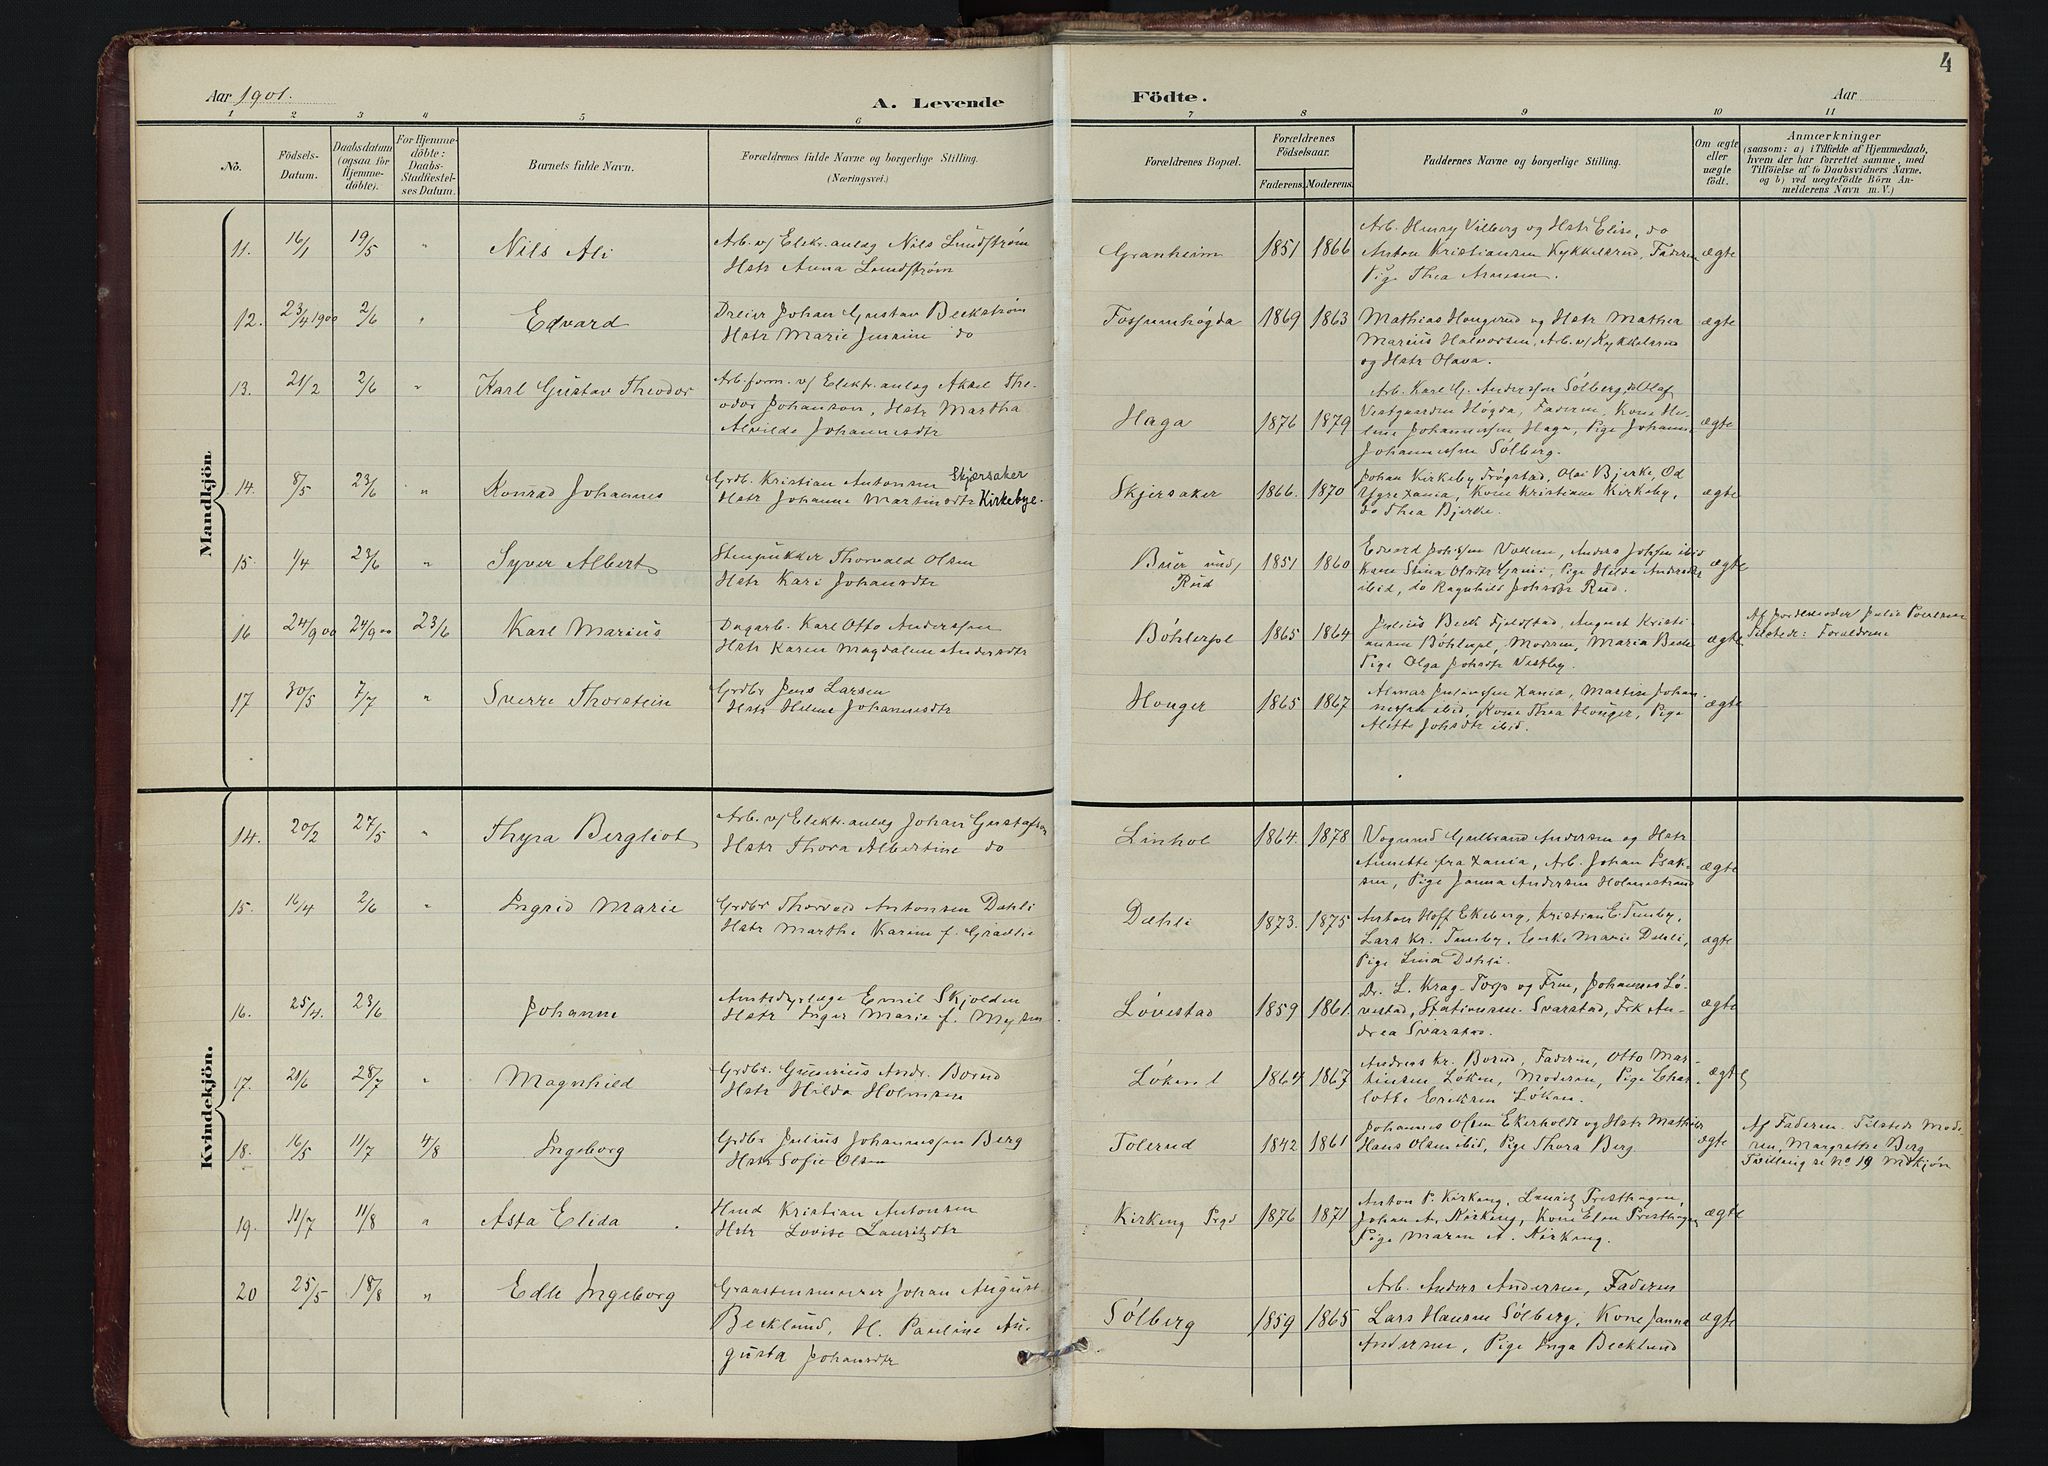 4
Aar 1901.
A. Levende Födte.
Aar
1 2 3 4 5 6 7 8 9 10 11
No.
Födsels-Datum.
Daabsdatum (ogsaa for Hjemme-döbte).
For Hjemme-döbte: Daabs-Stadfæstel-ses Datum.
Barnets fulde Navn.
Forældrenes fulde Navne og borgerlige Stilling.
(Næringsvei.)
Forældrenes Bopæl.
Forældrenes Födselsaar.
Faderens. Moderens.
Faddernes Navne og borgerlige Stilling.
Om ægte eller uægte födt.
Anmærkninger
(saasom: a) i Tilfælde af Hjemmedaab, hvem der har forrettet samme, med Tilföielse af to Daabsvidners Navne, og b) ved uægtefödte Börn An-melderens Navn m. V.)
Mandkjön
11. 16/1 19/5 " Nils Ali
Arb. v/ Elektr.anlæg Nils Lundstrøm
Hstr Anna Lundstrøm
Granheim 1851 1866
Arb. Henry Vilberg og Hstr Elise, do
Anton Kristiansen Kykkelsrud, Faderen
Pige Thea Arnesen.
ægte
12. 23/4 1900 2/6 " Edvard
Dreier Johan Gustav Beckstrøm
Hstr Marie Jensine do
Fossumhøgda 1869 1863
Mathias Hougerud og Hstr Mathea
Marius Halvorsen, Arb. v/ Kykkelsrud
og Hstr Olava.
ægte
13. 21/2 2/6 " Karl Gustav Theodor
Arb.form. v/ Elektr.anlæg Aksel The-
odor Johanson, Hstr Martha
Alvilde Johannesdtr
Haga 1876 1879
Arb. Karl G. Anderssen Sølberg, do Olaf
Vestgaarden Høgda, Faderen, Kone He-
line Johannessen Haga, Pige Johanne
Johannessen Sølberg.
ægte
14. 8/5 23/6 " Konrad Johannes
Grdb. Kristian Antonsen Skjærsaker
Hstr Johanne Martinsdtr Kirkebye.
Skjersaker 1866. 1870
Johan Kirkeby Trøgstad, Olai Bjerke Od
Ygre Xania, Kone Kristiane Kirkeby,
do Thea Bjerke.
ægte
15. 1/4 23/6 " Syver Albert
Stenpukker Thorvald Olsen
Hstr Kari Johansdtr
Buer und/ Rud 1851 1860
Edvard Johssen Vadem, Anders Johssen ibid
Kone Stina Olsdtr Grøni, Pige Hilda Andersdtr
ibid, do Ragnhild Johsdtr Rud.
ægte
16 24/9 00 24/9 00 23/6 Karl Marius
Dagarb. Karl Otto Anderssen
Hstr Karen Magdalene Andersdtr
Bøhlerpl 1865 1864
Julius Beck Fjeldstad, August Kristi-
ansen Bøhlerpl, Moderen, Maria Beck
Pige Olga Johsdtr Vestby.
ægte
Af Jordemoder Julie Paulsen
Tilstede: Forældrene
17 30/5 7/7 " Sverre Thorstein
Grdbr Jens Larsen
Hstr Helene Johannesdtr
Houger 1865 1867
Almar Juliussen Xania, Martin Johan-
nessen ibid, Kone Thea Houger, Pige
Alette Johsdtr ibid.
ægte
Kvindekjön.
14. 20/2 27/5 " Thyra Bergliot
Arb. v/ Elektr.anlæg Johan Gustafson
Hstr Thora Albertine do
Linhol 1864. 1878
Vognmd Gulbrand Andersen og Hstr
Annette fra Xania, Arb. Johan Isak-
sen, Pige Janna Andersen Holmestrand
ægte
15. 16/4 2/6 " Ingrid Marie
Grdbr Thorvald Antonsen Dæhli
Hstr Marthe Karine f. Grædtie
Dæhli 1873. 1875
Anton Hoff Ekeberg, Kristian E. Tensby,
Lars Kr. Tensby, Enke Marie Dæhli,
Pige Lina Dæhli.
ægte
16. 25/4. 23/6 Johanne
Amtsdyrlæge Emil Skjolden
Hstr Inger Marie f. Mysen
Løvestad 1859 1861.
Dr. L. Krag-Torp og Frue, Johannes Lø-
vestad, Stationsm. Svarstad, Frk An-
drea Svarstad.
ægte
17. 21/6 28/7 " Magnhild
Grdbr. Gunerius Andr. Borud
Hstr Hilda Holmsen
Løken l 1864 1867
Andreas Kr. Borud, Faderen, Otto Mar-
tinsen Løken, Moderen, Pige Char-
lotte Eriksen Løken.
ægte
18. 16/5 11/7 4/8 Ingeborg
Grdbr Julius Johannessen Berg
Hstr Sofie Olsen
Tolerud 1842 1861
Johannes Olsen Ekerholdt og Hstr Mathilde
Hans Olsen ibid, Pige Thora Berg.
ægte
Af Faderen. Tilstede Mode-
ren, Margrethe Berg
Tvilling se No 19 Mdkjön
19. 11/7 11/8 " Asta Elida
Hmd Kristian Antonsen
Hstr Lovise Lauritzdtr
Kirkeng Prgd 1876 1871
Anton P. Kirkeng, Lauritz Presthagen,
Johan A. Kirkeng, Kone Elen Presthagen
Pige Maren A. Kirkeng.
ægte
20 25/5 18/8 " Edle Ingeborg
Graastensmurer Johan August
Becklund, H. Pauline Au-
gusta Johansdtr
Sølberg 1859 1865
Arb. Anders Andersen, Faderen
Lars Hansen Sølberg, Kone Janna
Andersen, Pige Inga Becklund
ægte